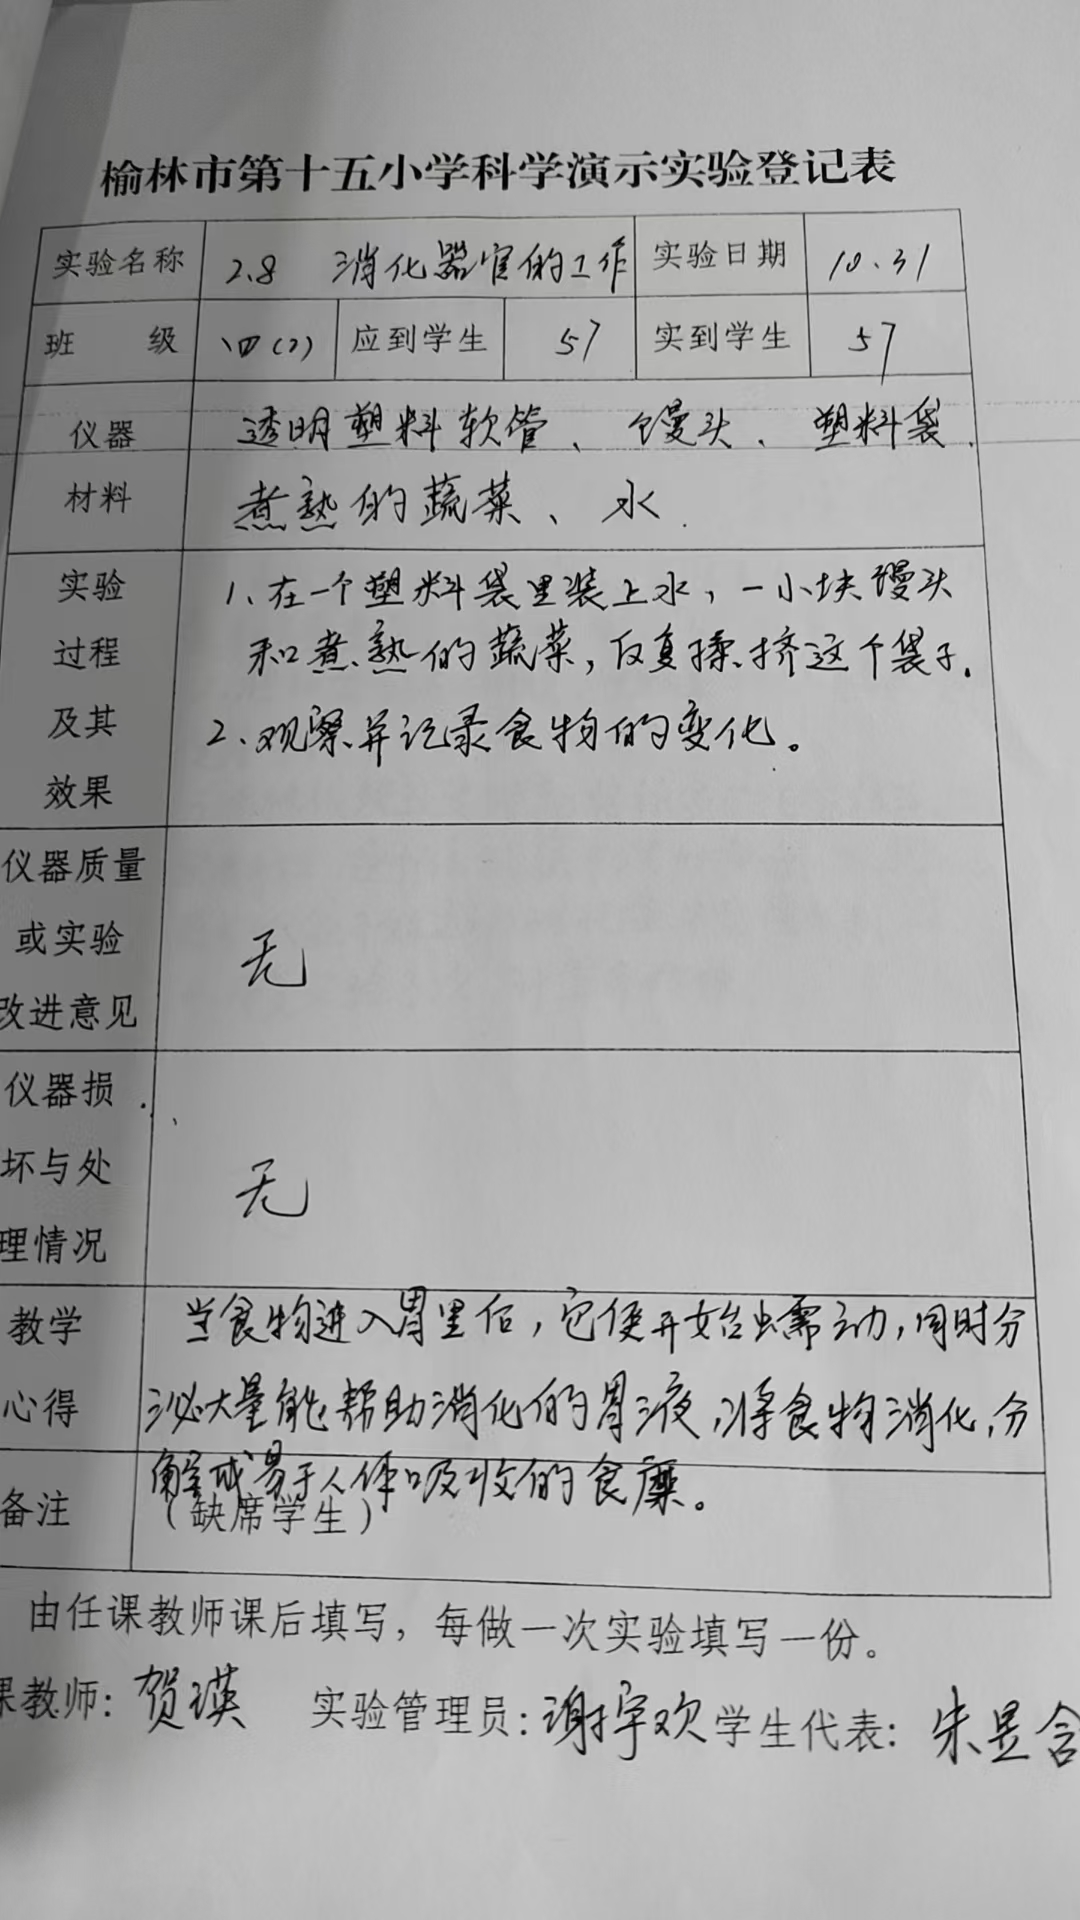 榆林市第十五小学科学演示实验登记表
实验名称 2.8 消化器官的工作 实验日期 10.31
班 级 四(2) 应到学生 57 实到学生 57
仪器 透明塑料软管、馒头、塑料袋
材料 煮熟的蔬菜、水.
实验 1、在一个塑料袋里装上水，一小块馒头
过程 和煮熟的蔬菜，反复揉挤这个袋子.
及其 2、观察并记录食物的变化。
效果
仪器质量
或实验 无
改进意见
仪器损
坏与处 无
理情况
教学 当食物进入胃里后，它便开始蠕动，同时分
心得 泌大量能帮助消化的胃液，将食物消化，分
解成易于人体吸收的食糜。
备注 （缺席学生）
由任课教师课后填写，每做一次实验填写一份。
课教师：贺瑛 实验管理员：谢宇欢 学生代表：朱昱含